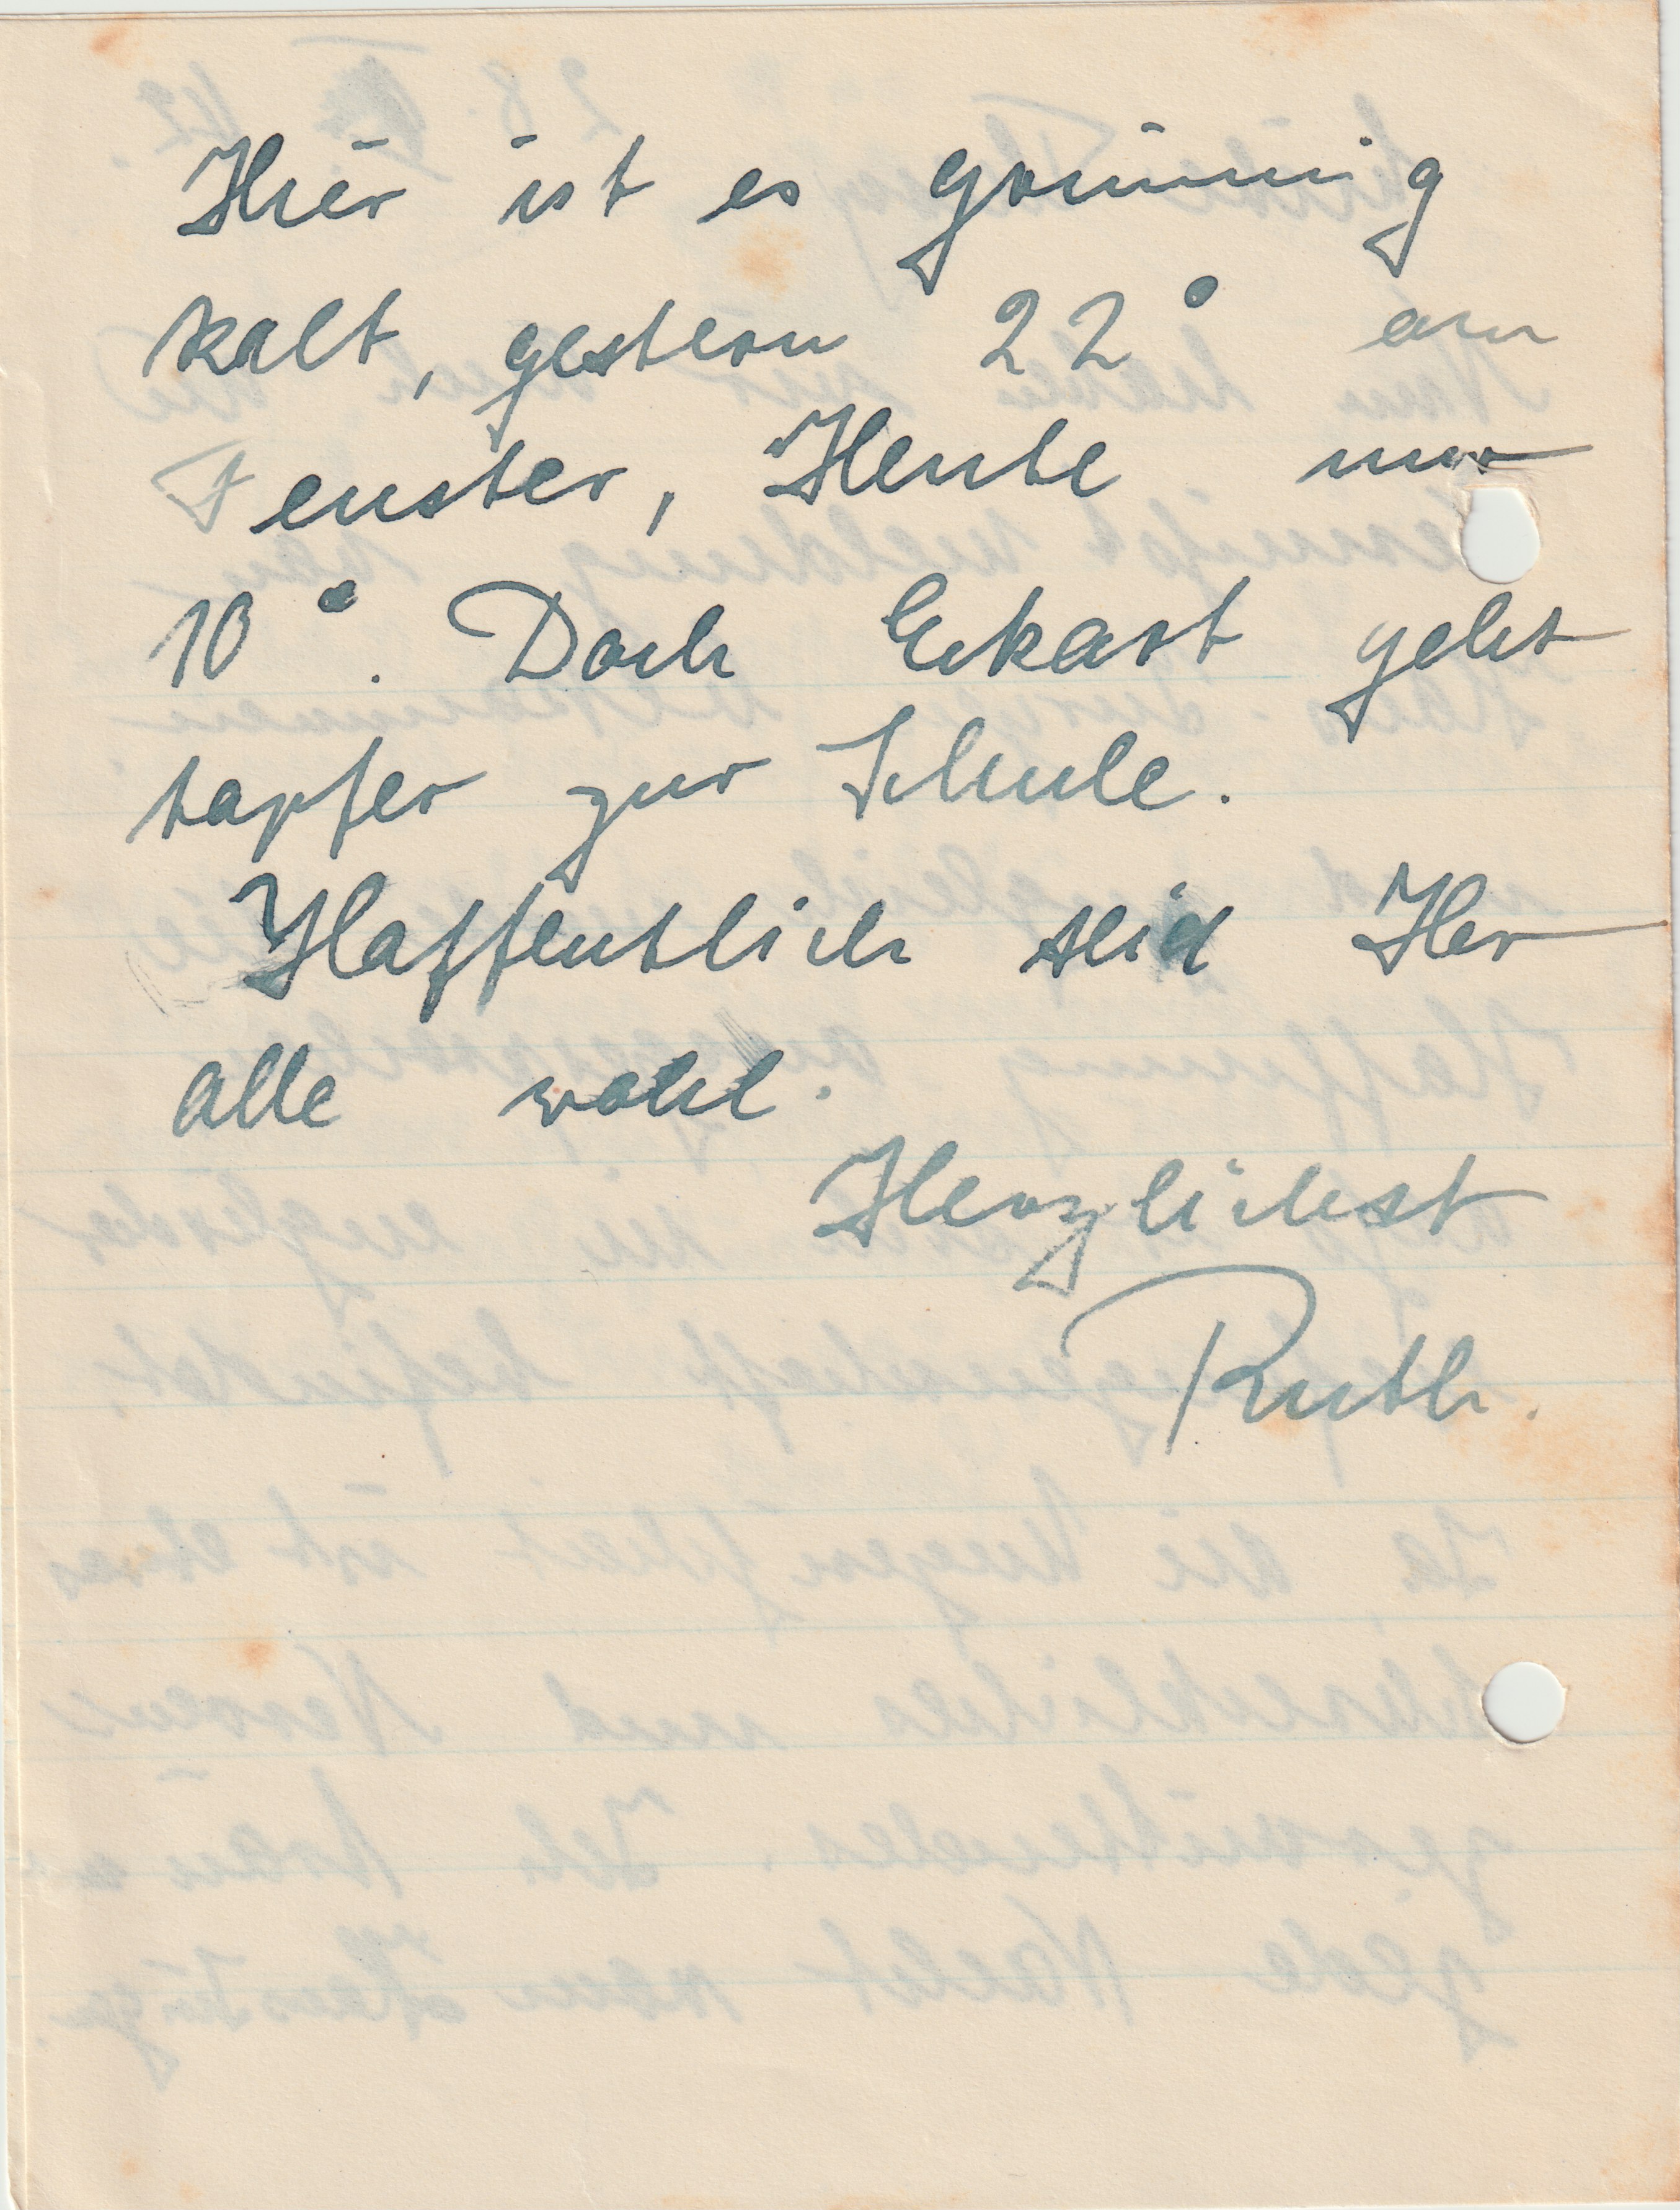 Hier ist es grimmig
kalt, gestern 22° am
Fenster, Heute nur
10°. Doch Eckart geht
tapfer zur Schule.
Hoffentlich seid Ihr
alle wohl.
Herzlichst
Ruth.